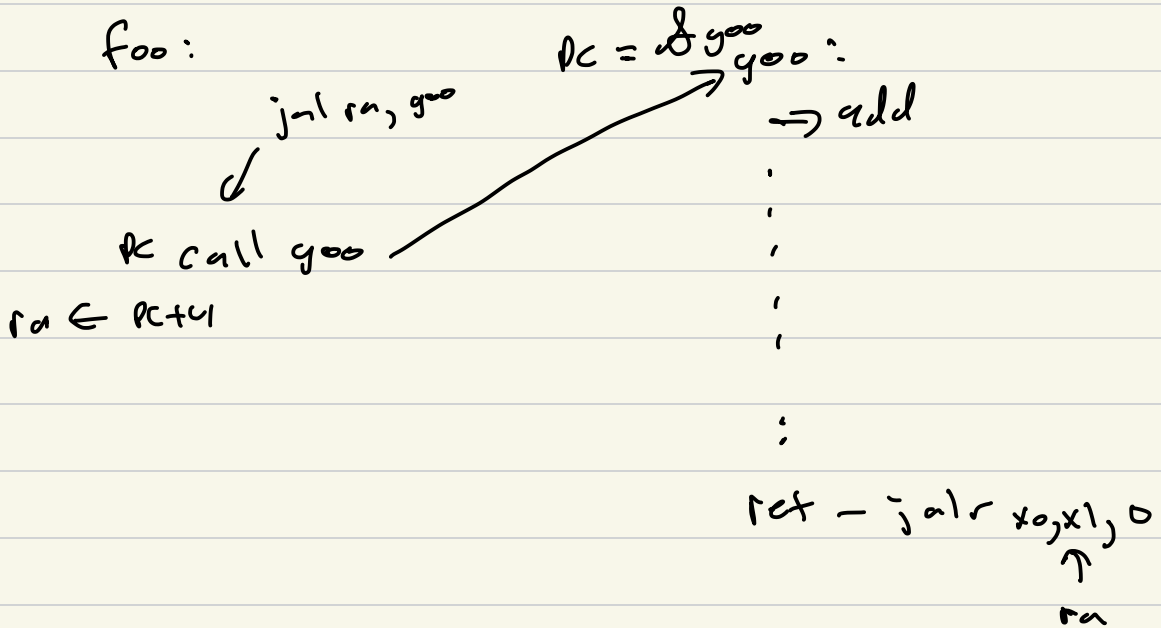 foo:
jal ra, goo
PC call goo
ra ← PC+4
PC = &goo
goo:
→ add
ret - jalr x0,x1, 0
↑
ra